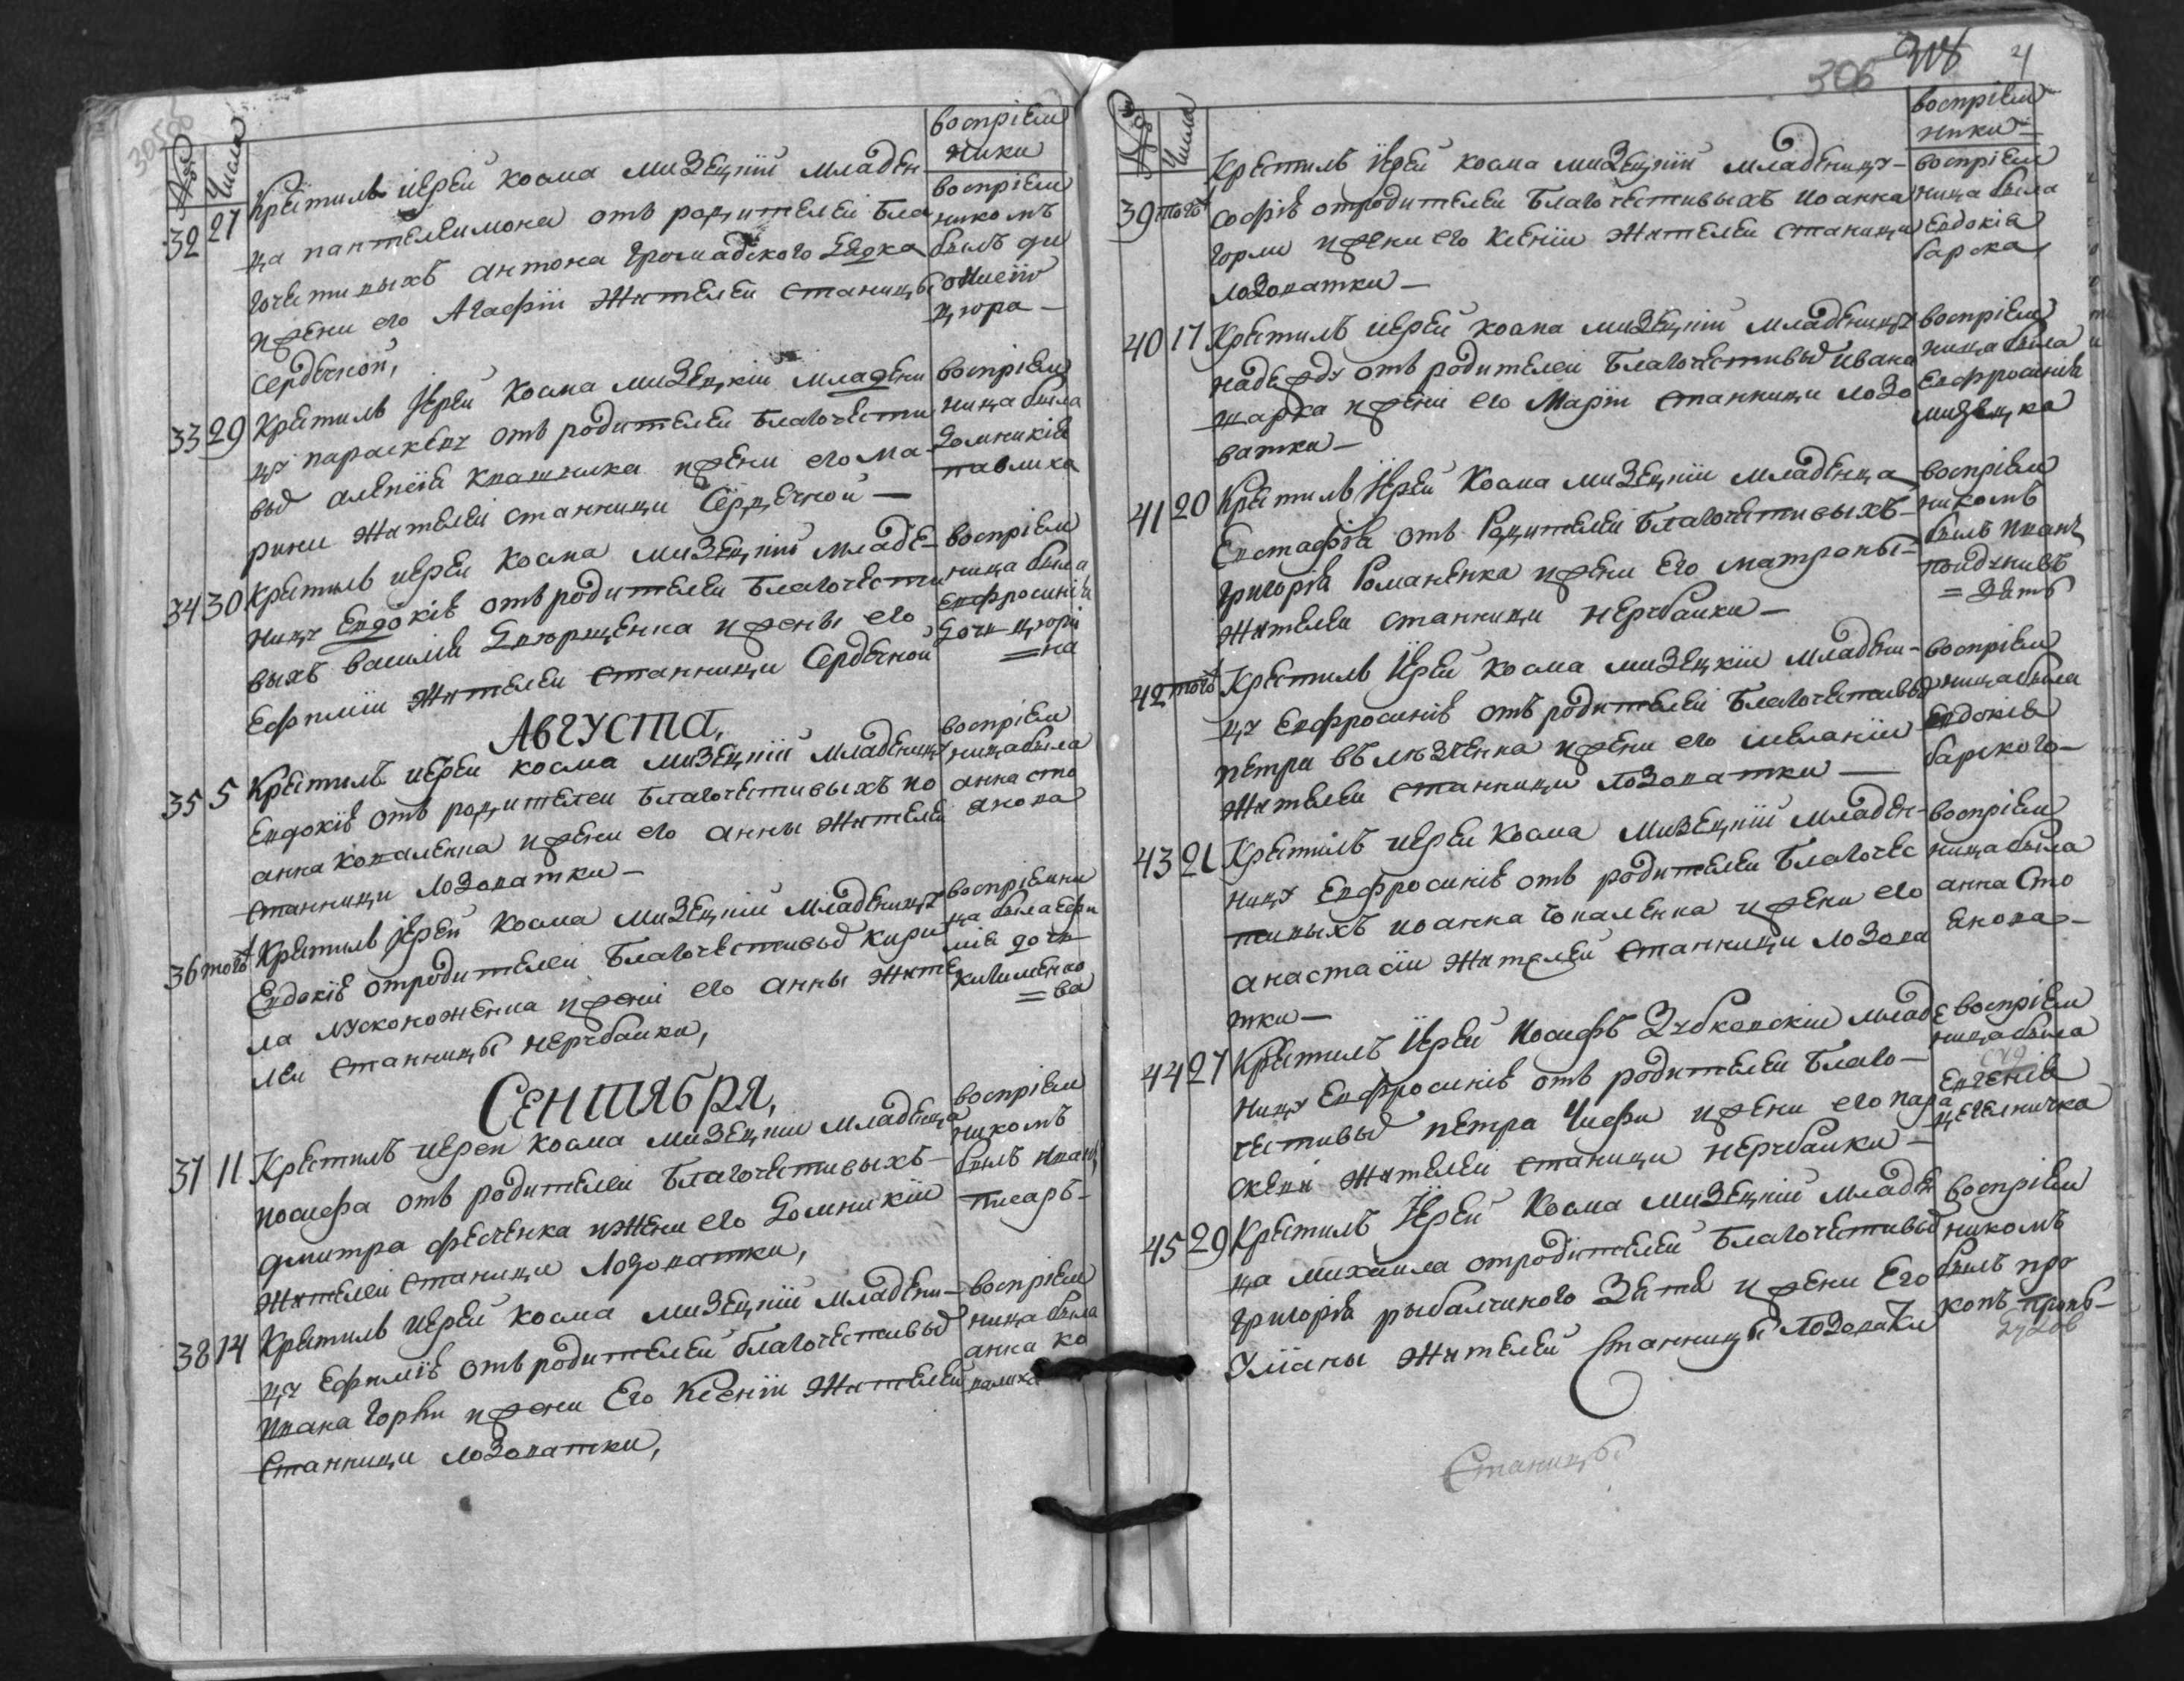 306
4
Числа
воспріем
ники
32 27 Крестилъ иерей косма мизецкїй младен
ца пантелеимона отъ родителей Бла
гочестивыхъ антона громадского
и жени его Агафіи жителей станицы
Сердечной,
воспріем
никомъ
былъ
цюра
33 29 Крестилъ Іерей Косма мизецкїй младени
цу параскеву отъ родителей Благочести
выд алексіи квашника и жени его ма
рини жителей станници Сердечной
воспріем
ница была
Домникіѣ
павлиха
34 30 Крестилъ иерей Косма мизецкїй младе
ницу Евдокіѣ отъ родителей Благочести
выхъ василіи и жены его
Ефиміи жителей станници Сердечной
воспріем
ница была
Евфросиніѣ
на
АВГУСТА,
35 5 Крестилъ иерей косма мизецкїй младеницу
Евдокіѣ отъ родителей Благочестивыхъ ио
анна коваленка и жени его анны жителей
станници Лозоватки
воспріем
ница была
анна сто
янова
36 того Крестилъ іерей Косма мизецкїй младеницу
Евдокіѣ отродителей Благочестивыд кири
ла лусконоженка и жени его анны жите
лей станницы нерубайки,
воспріемни
ца была Ефи
міѣ дочь
клименко
ва
СЕНТЯБРЯ,
37 11 Крестилъ иерей косма мизецкїй младенца
иосифа отъ родителей Благочестивыхъ
дмитра фесенка и жени его Домникіи
жителей станици Лозоватки,
воспріем
никомъ
былъ иванъ
писаръ
38 14 Крестилъ иерей косма мизецкїй младени
цу Ефиміѣ отъ родителей благочестивыд
Ивана Горби и жени Его Ксеніи жителей
Станници лозоватки,
воспріем
ница была
анна ко
валиха
Числа
воспріем
ники
39 того Крестилъ Іерей косма мизецкїй младеницу
софіѣ отродителей Благочестивыхъ иоанна
и жени его Ксеніи жителей станици
лозоватки
воспріем
ница была
Евдокіѣ
барска
40 17 Крестилъ иерей косма мизецкїй младеницу
надежду отъ родителей Благочестивыд ивана
шарка и жені его Маріи станници лозо
ватки
воспріем
ница была
Евфросиніѣ
мизецка
41 20 Крестилъ Іерей Косма мизецкїй младенца
Евстафіѣ отъ Родителей Благочестивыхъ
григоріѣ Романенка и жени Его матроны
жителей станници нерубайки
воспріем
никомъ
былъ иванъ
зять
42 того Крестилъ Іерей косма мизецкїй младени
цу Евфросиніѣ отъ родителей Благочестивыд
петра и жени его меланіи
жителей станници лозоватки
воспріем
ница была
Евдокіѣ
барского
43 21 Крестилъ иерей Косма мизецкїй младен
ицу Евфросиніѣ отъ родителей Благочес
тивыхъ иоанна чопаленка и жени его
анастасіи жителей станници лозова
тки
воспріем
ница была
анна Сто
янова
44 27 Крестилъ Іерей Иосифъ Зубковскій младе
ницу Евфросиніѣ отъ родителей Благо
честивыд петра и жени его пара
скеви жителей станици нерубайки
воспріем
ница была
Евгеніѣ
цегелничка
45 29 Крестилъ Іерей Косма мизецкїй младен
ца михаила отродителей Благочестивыд
григоріѣ рыбалчиного зятѣ и жени Его
улїаны жителей Станницы Лозоватки
воспріем
никомъ
былъ про
копъ
Станицы